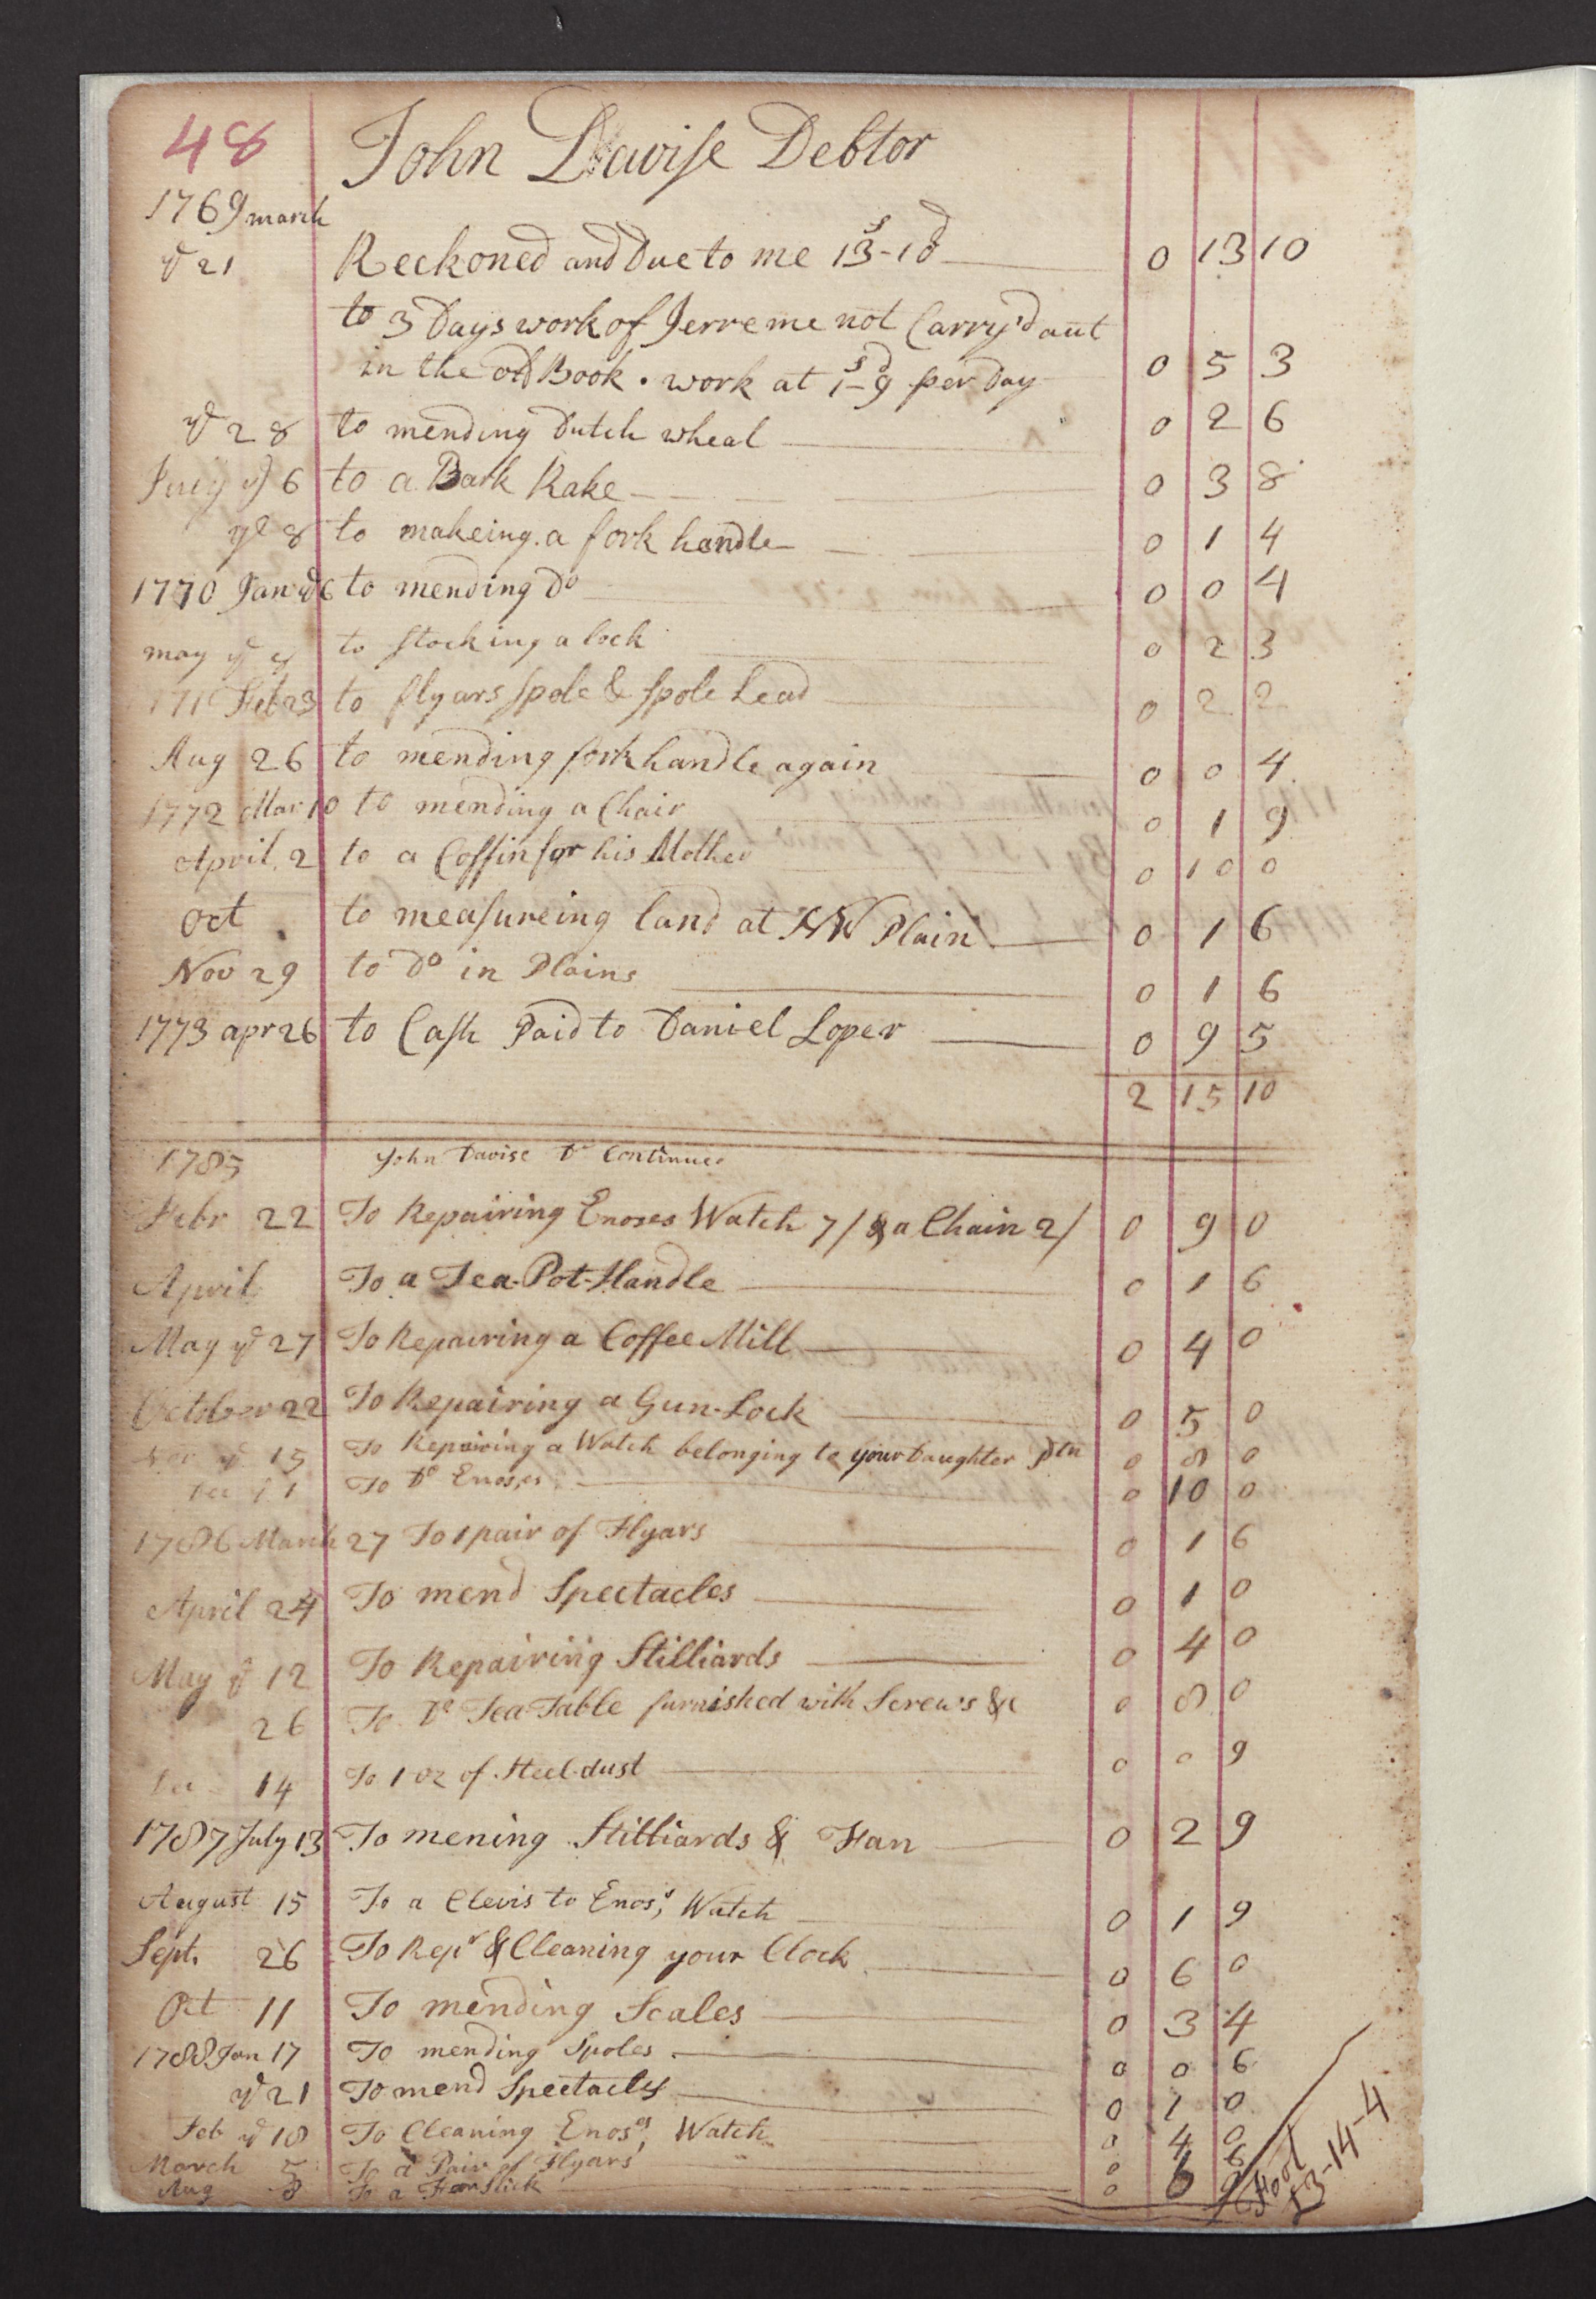 48 John Davise Debtor
1769 march
ye 21 Reckoned and Due to me 13s-10d 0 13 10
to 3 Days work of Jerreme not Carry'd aut
in the old Book . work at 1s-9d per Day 0 5 3
ye 28 to mending Dutch wheal 0 2 6
July ye 6 to a Bark Rake 0 3 8
ye 8 to makeing a fork handle 0 1 4
1770 Jan ye 6 to mending Do 0 0 4
may ye to stocking a lock 0 2 3
Feb 23 to flyars spole & spole Lead 0 2 2
Aug 26 to mending fork handle again 0 0 4
1772 Mar 10 to mending a Chair 0 1 9
April 2 to a Coffin for his Mother 0 10 0
Oct to measureing land at NW Plain 0 1 6
Nov 29 to Do in Plains 0 1 6
1773 apr 26 to Cash Paid to Daniel Loper 0 9 5
2 15 10
1785 John Davise Dr Continued
Febr 22 To Repairing Enoses Watch 7/ & a Chain 2/ 0 9 0
April To a Tea-Pot-Handle 0 1 6
May ye 27 To Repairing a Coffee Mill 0 4 0
October 22 To Repairing a Gun-Lock 0 5 0
Nov ye 15 To Repairing a Watch belonging to your Daughter 0 8 0
To Do Enos,es 0 10 0
1786 March 27 To 1 pair of Flyars 0 1 6
April 24 To mend Spectacles 0 1 0
May ye 12 To Repairing Stilliards 0 4 0
26 To Do Tea-Table furnished with Screws &c 0 8 0
14 To 1 oz of Steel-dust 0 0 9
1787 July 13 To mening Stilliards & Fan 0 2 9
August 15 To a Clevis to Enos,s Watch 0 1 9
Sept. 26 To Repr & Cleaning your Clock 0 6 0
Oct 11 To mending Scales 0 3 4
1788 Jan 17 To mending Spoles 0 0 6
ye 21 To mend Spectacles 0 1 0
Feb ye 18 To Cleaning Enos,es Watch 0 4 0
March 5 To a Pair of Flyars 0 6
Aug 8 To a Stick 0
Foot
£3-14-4